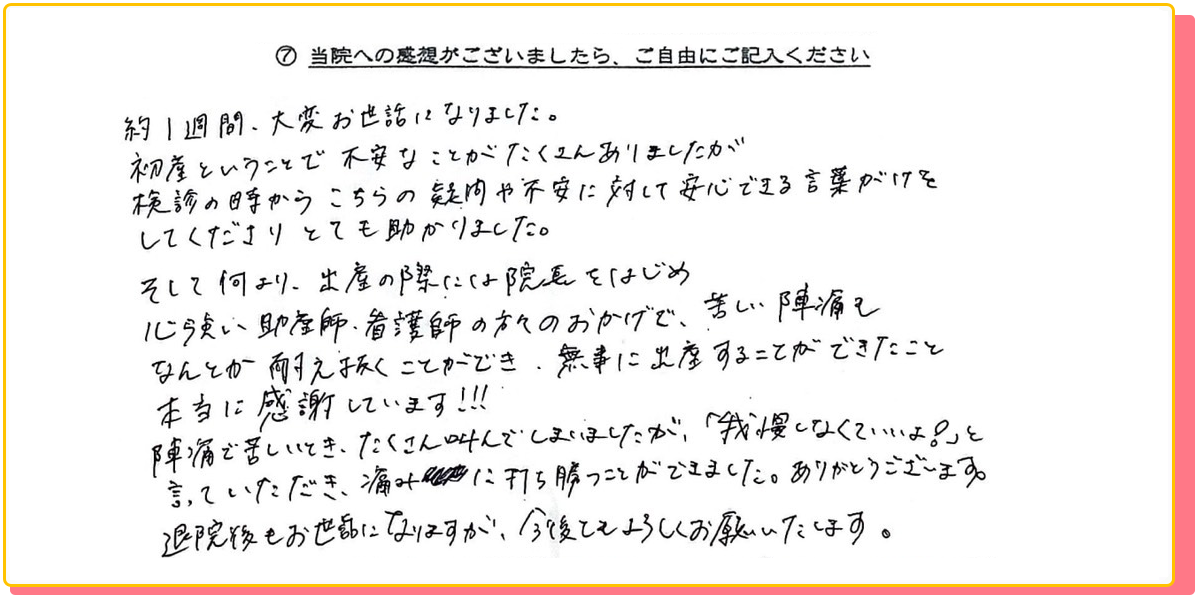 ⑦ 当院への感想がございましたら、ご自由にご記入ください
約1週間、大変お世話になりました。
初産ということで不安なことがたくさんありましたが
検診の時からこちらの疑問や不安に対して安心できる言葉がけを
してくださりとても助かりました。
そして何より、出産の際には院長をはじめ
心強い助産師、看護師の方々のおかげで、苦しい陣痛も
なんとか耐え抜くことができ、無事に出産することができたこと
本当に感謝しています!!!
陣痛で苦しいとき、たくさん叫んでしまいましたが、「我慢しなくていいよ?」と
言っていただき、痛みに打ち勝つことができました。ありがとうございます。
退院後もお世話になりますが、今後ともよろしくお願いいたします。